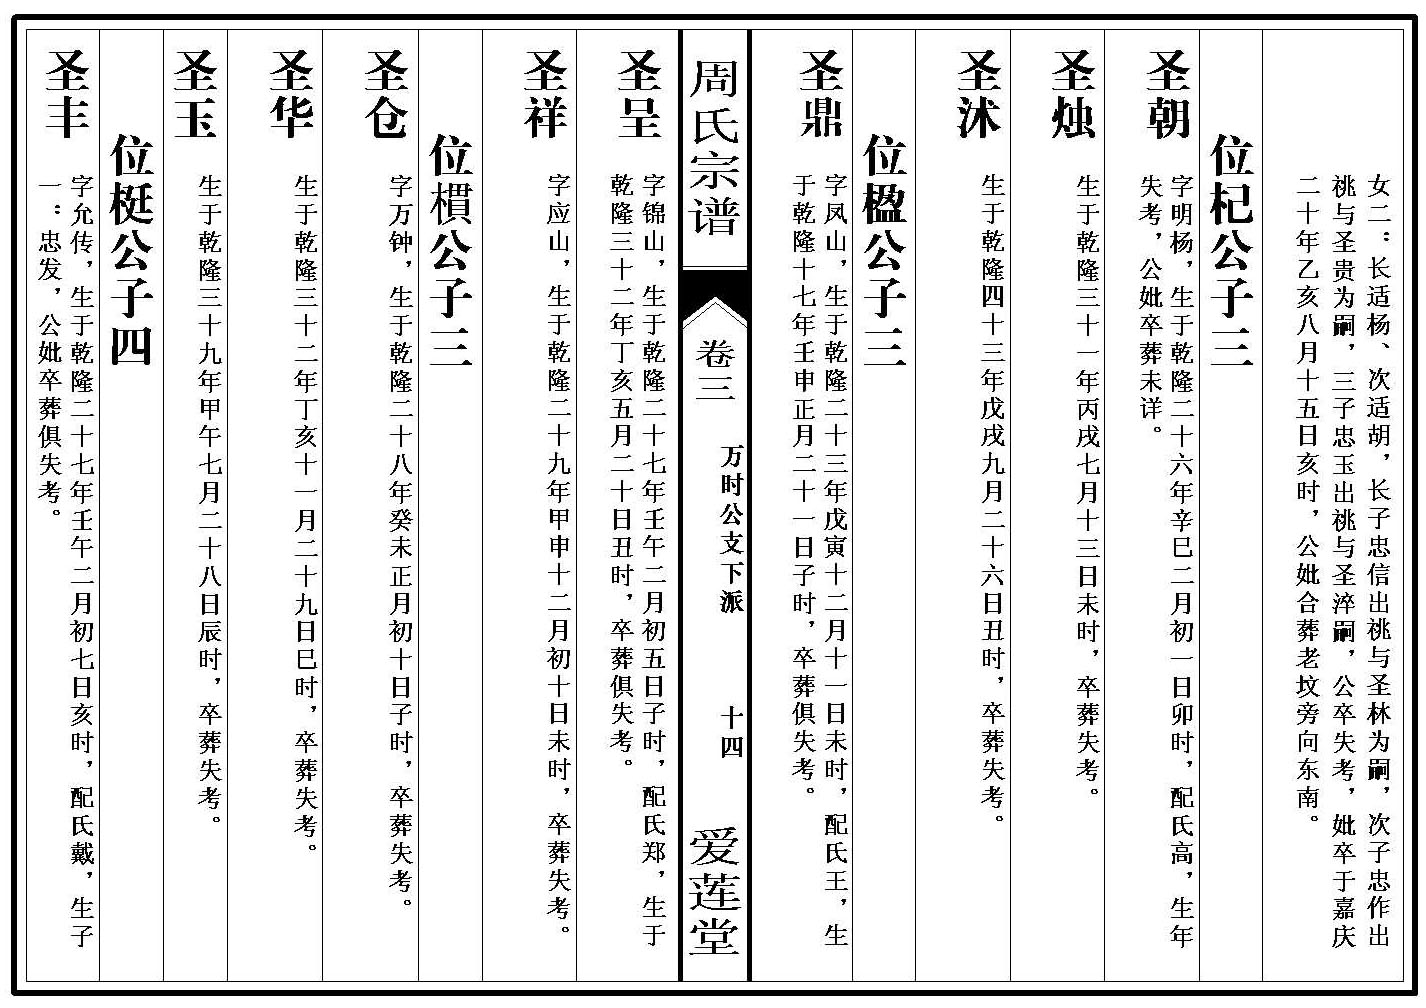 女二：长适杨、次适胡，长子忠信出祧与圣林为嗣，次子忠作出
祧与圣贵为嗣，三子忠玉出祧与圣淬嗣，公卒失考，妣卒于嘉庆
二十年乙亥八月十五日亥时，公妣合葬老坟旁向东南。
位杞公子三
圣朝
字明杨，生于乾隆二十六年辛巳二月初一日卯时，配氏高，生年
失考，公妣卒葬未详。
圣烛
生于乾隆三十一年丙戌七月十三日未时，卒葬失考。
圣沭
生于乾隆四十三年戊戌九月二十六日丑时，卒葬失考。
位楹公子三
圣鼎
字凤山，生于乾隆二十三年戊寅十二月十一日未时，配氏王，生
于乾隆十七年壬申正月二十一日子时，卒葬俱失考。
周氏宗谱
卷三
万时公支下派
十四
爱莲堂
圣呈
字锦山，生于乾隆二十七年壬午二月初五日子时，配氏郑，生于
乾隆三十二年丁亥五月二十日丑时，卒葬俱失考。
圣祥
字应山，生于乾隆二十九年甲申十二月初十日未时，卒葬失考。
位樌公子三
圣仓
字万钟，生于乾隆二十八年癸未正月初十日子时，卒葬失考。
圣华
生于乾隆三十二年丁亥十一月二十九日巳时，卒葬失考。
圣玉
生于乾隆三十九年甲午七月二十八日辰时，卒葬失考。
位梃公子四
圣丰
字允传，生于乾隆二十七年壬午二月初七日亥时，配氏戴，生子
一：忠发，公妣卒葬俱失考。